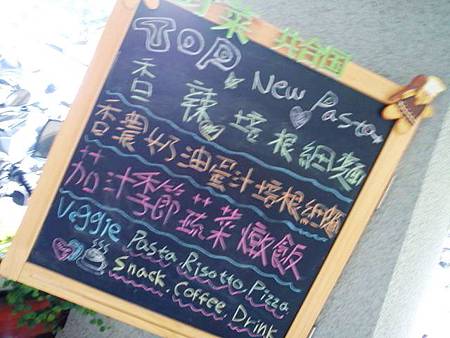 菜 共合国
TOP New Pasta
香 辣 培根細麵
香濃奶油蛋汁培根細麵
茄汁季節蔬菜燉飯
Veggie Pasta, Risotto, Pizza,
Snack, Coffee, Drink